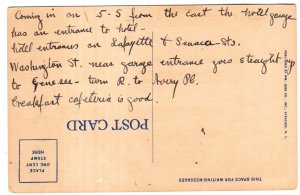 Coming in on 5-S from the east the hotel garage
has an entrance to hotel-
hotel entrances on Lafayette & Seneca Sts.
Washington St. near garage entrance goes straight up
to Genesee - turn R. to Avery Pl.
breakfast cafeteria is good.
POST CARD
PLACE
ONE CENT
STAMP
HERE
THIS SPACE FOR WRITING MESSAGES